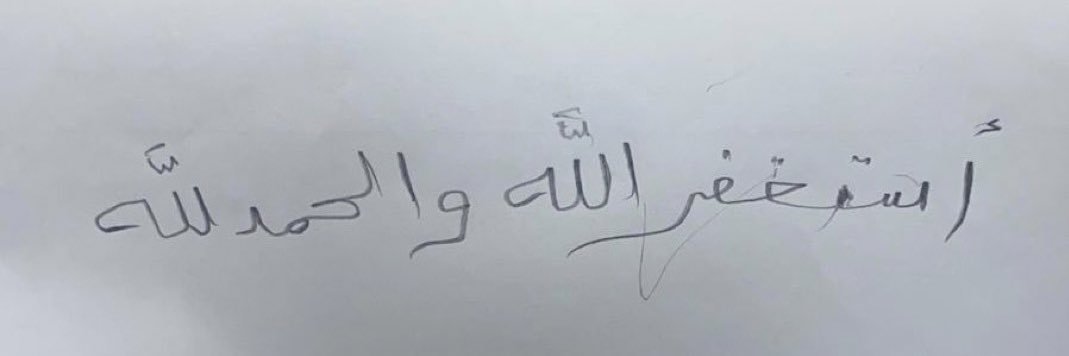 أستغفر اللّه والحمد للّه